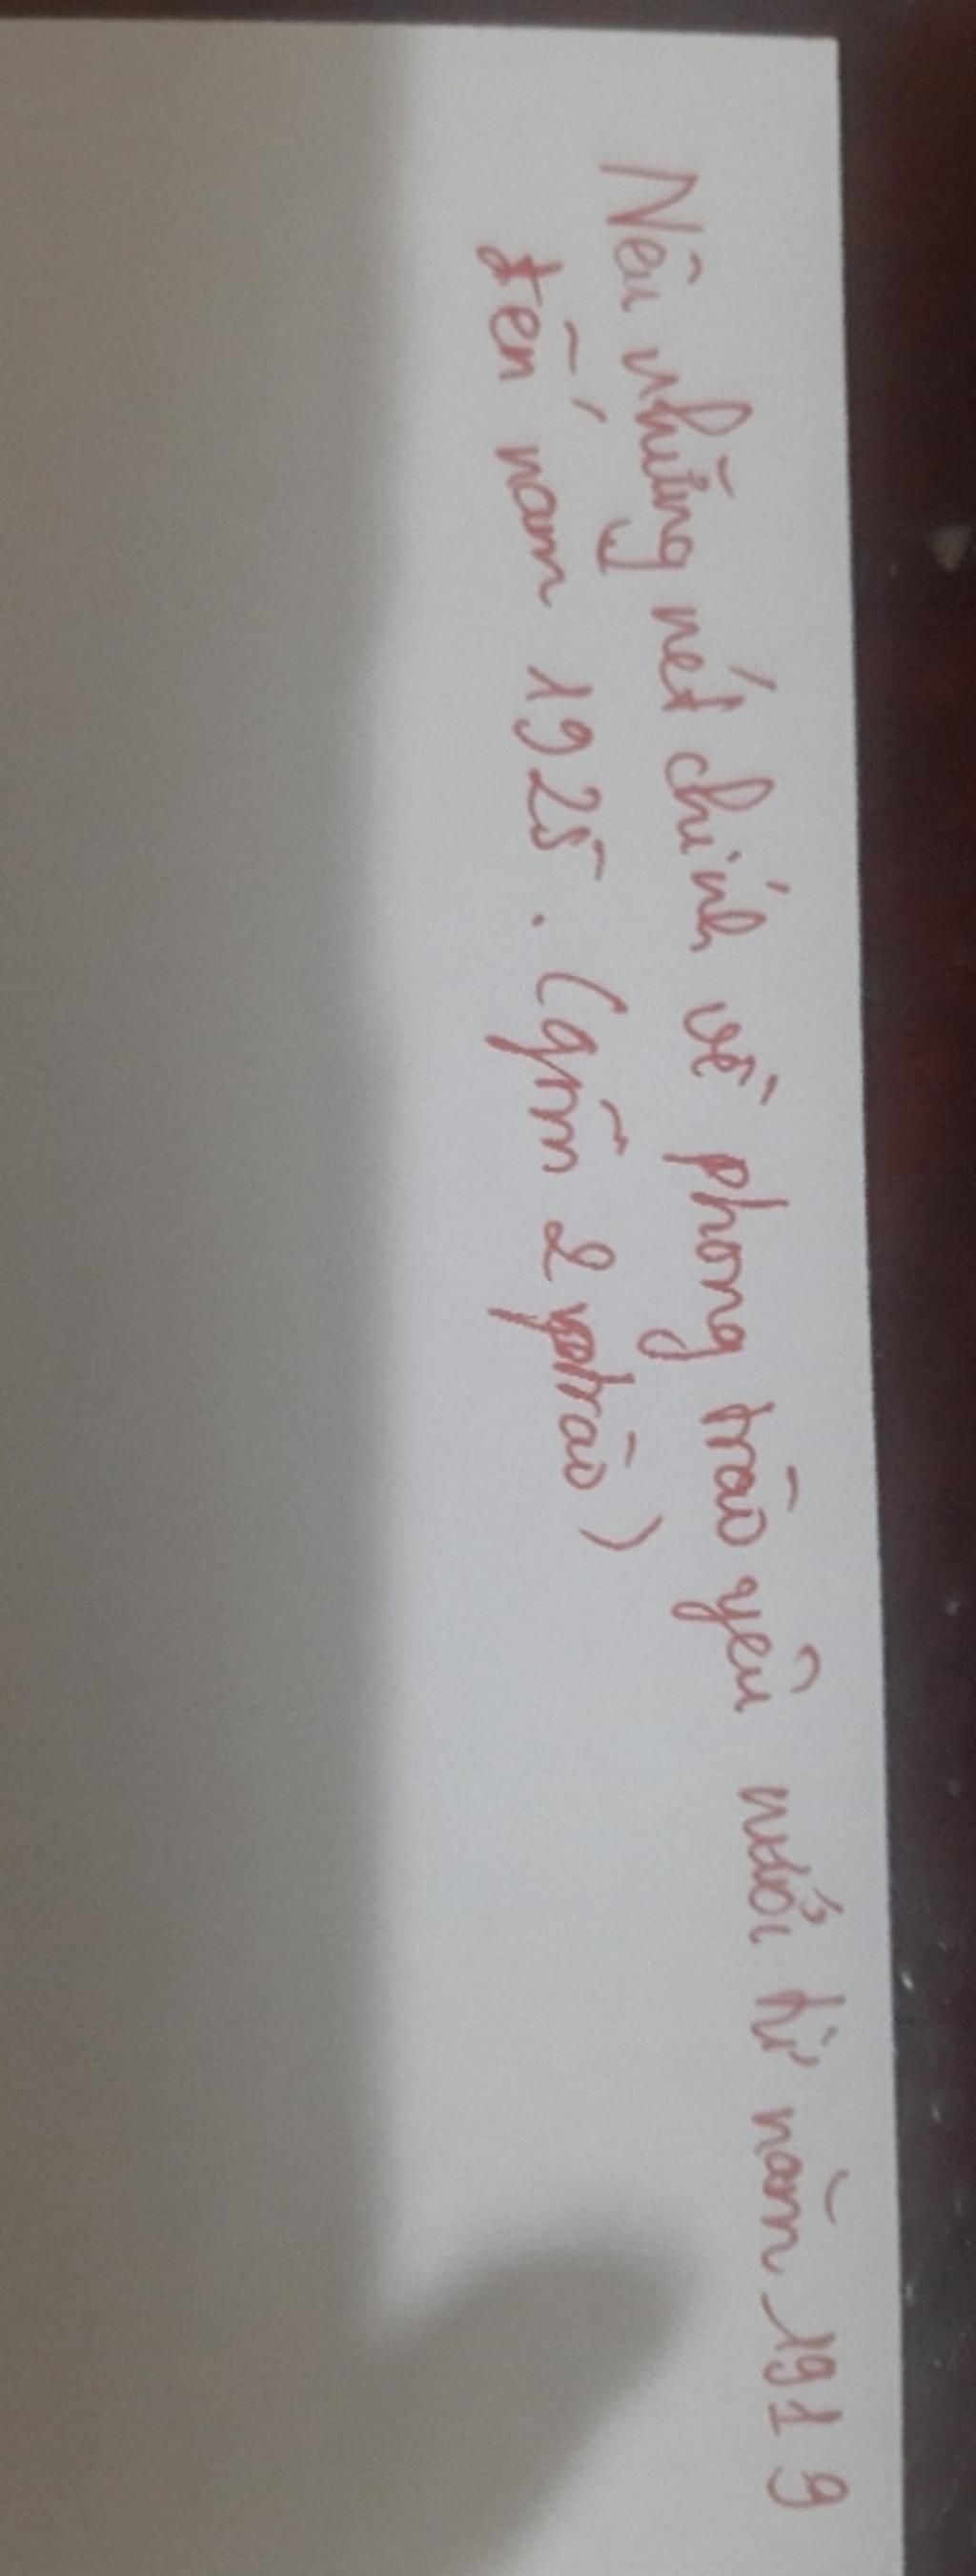 Nêu những nét chính về phong trào yêu nước từ năm 1919
đến năm 1925. (gồm 2 ptrào)